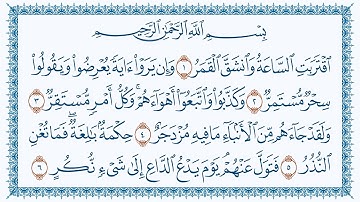 بِسْمِ ٱللَّهِ ٱلرَّحْمَٰنِ ٱلرَّحِيمِ
ٱقْتَرَبَتِ ٱلسَّاعَةُ وَٱنشَقَّ ٱلْقَمَرُ ١ وَإِن يَرَوْا۟ ءَايَةً يُعْرِضُوا۟ وَيَقُولُوا۟
سِحْرٌ مُّسْتَمِرٌّ ٢ وَكَذَّبُوا۟ وَٱتَّبَعُوٓا۟ أَهْوَآءَهُمْ ۚ وَكُلُّ أَمْرٍ مُّسْتَقِرٌّ ٣
وَلَقَدْ جَآءَهُم مِّنَ ٱلْأَنۢبَآءِ مَا فِيهِ مُزْدَجَرٌ ٤ حِكْمَةٌۢ بَٰلِغَةٌ ۖ فَمَا تُغْنِ
ٱلنُّذُرُ ٥ فَتَوَلَّ عَنْهُمْ ۘ يَوْمَ يَدْعُ ٱلدَّاعِ إِلَىٰ شَىْءٍ نُّكُرٍ ٦